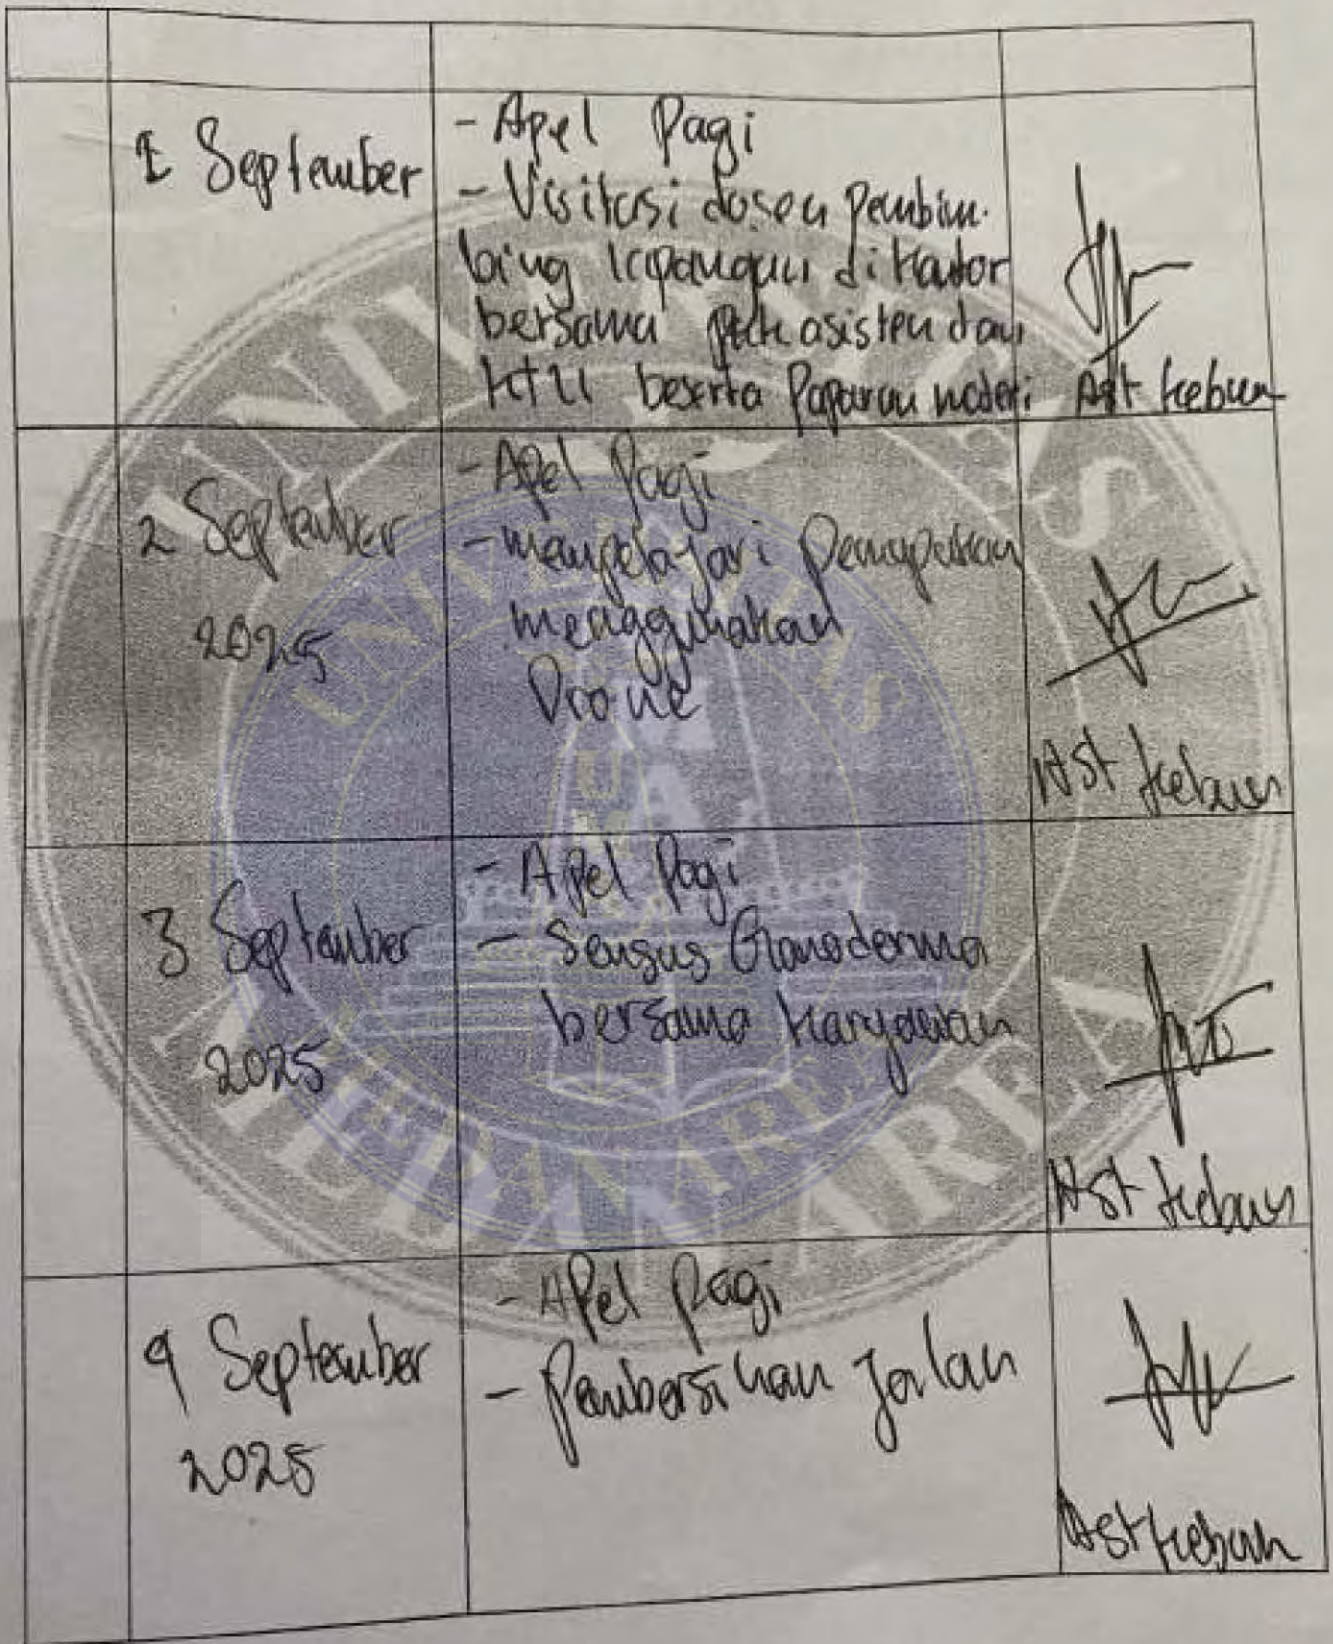 1 September
- Apel Pagi
- Visitasi dosen pembim-
bing lapangan di kantor
bersama asisten dan
KTU beserta Paparan materi
Ast kebun
2 September
2025
- Apel Pagi
- mempelajari Pemupukan
menggunakan
Drone
Ast kebun
3 September
2025
- Apel Pagi
- Sensus Ganoderma
bersama karyawan
Ast kebun
4 September
2025
- Apel Pagi
- Pembersihan Jalan
Ast kebun
UNIVERSITAS
MEDAN AREA
UNIVERSITAS
MEDAN AREA